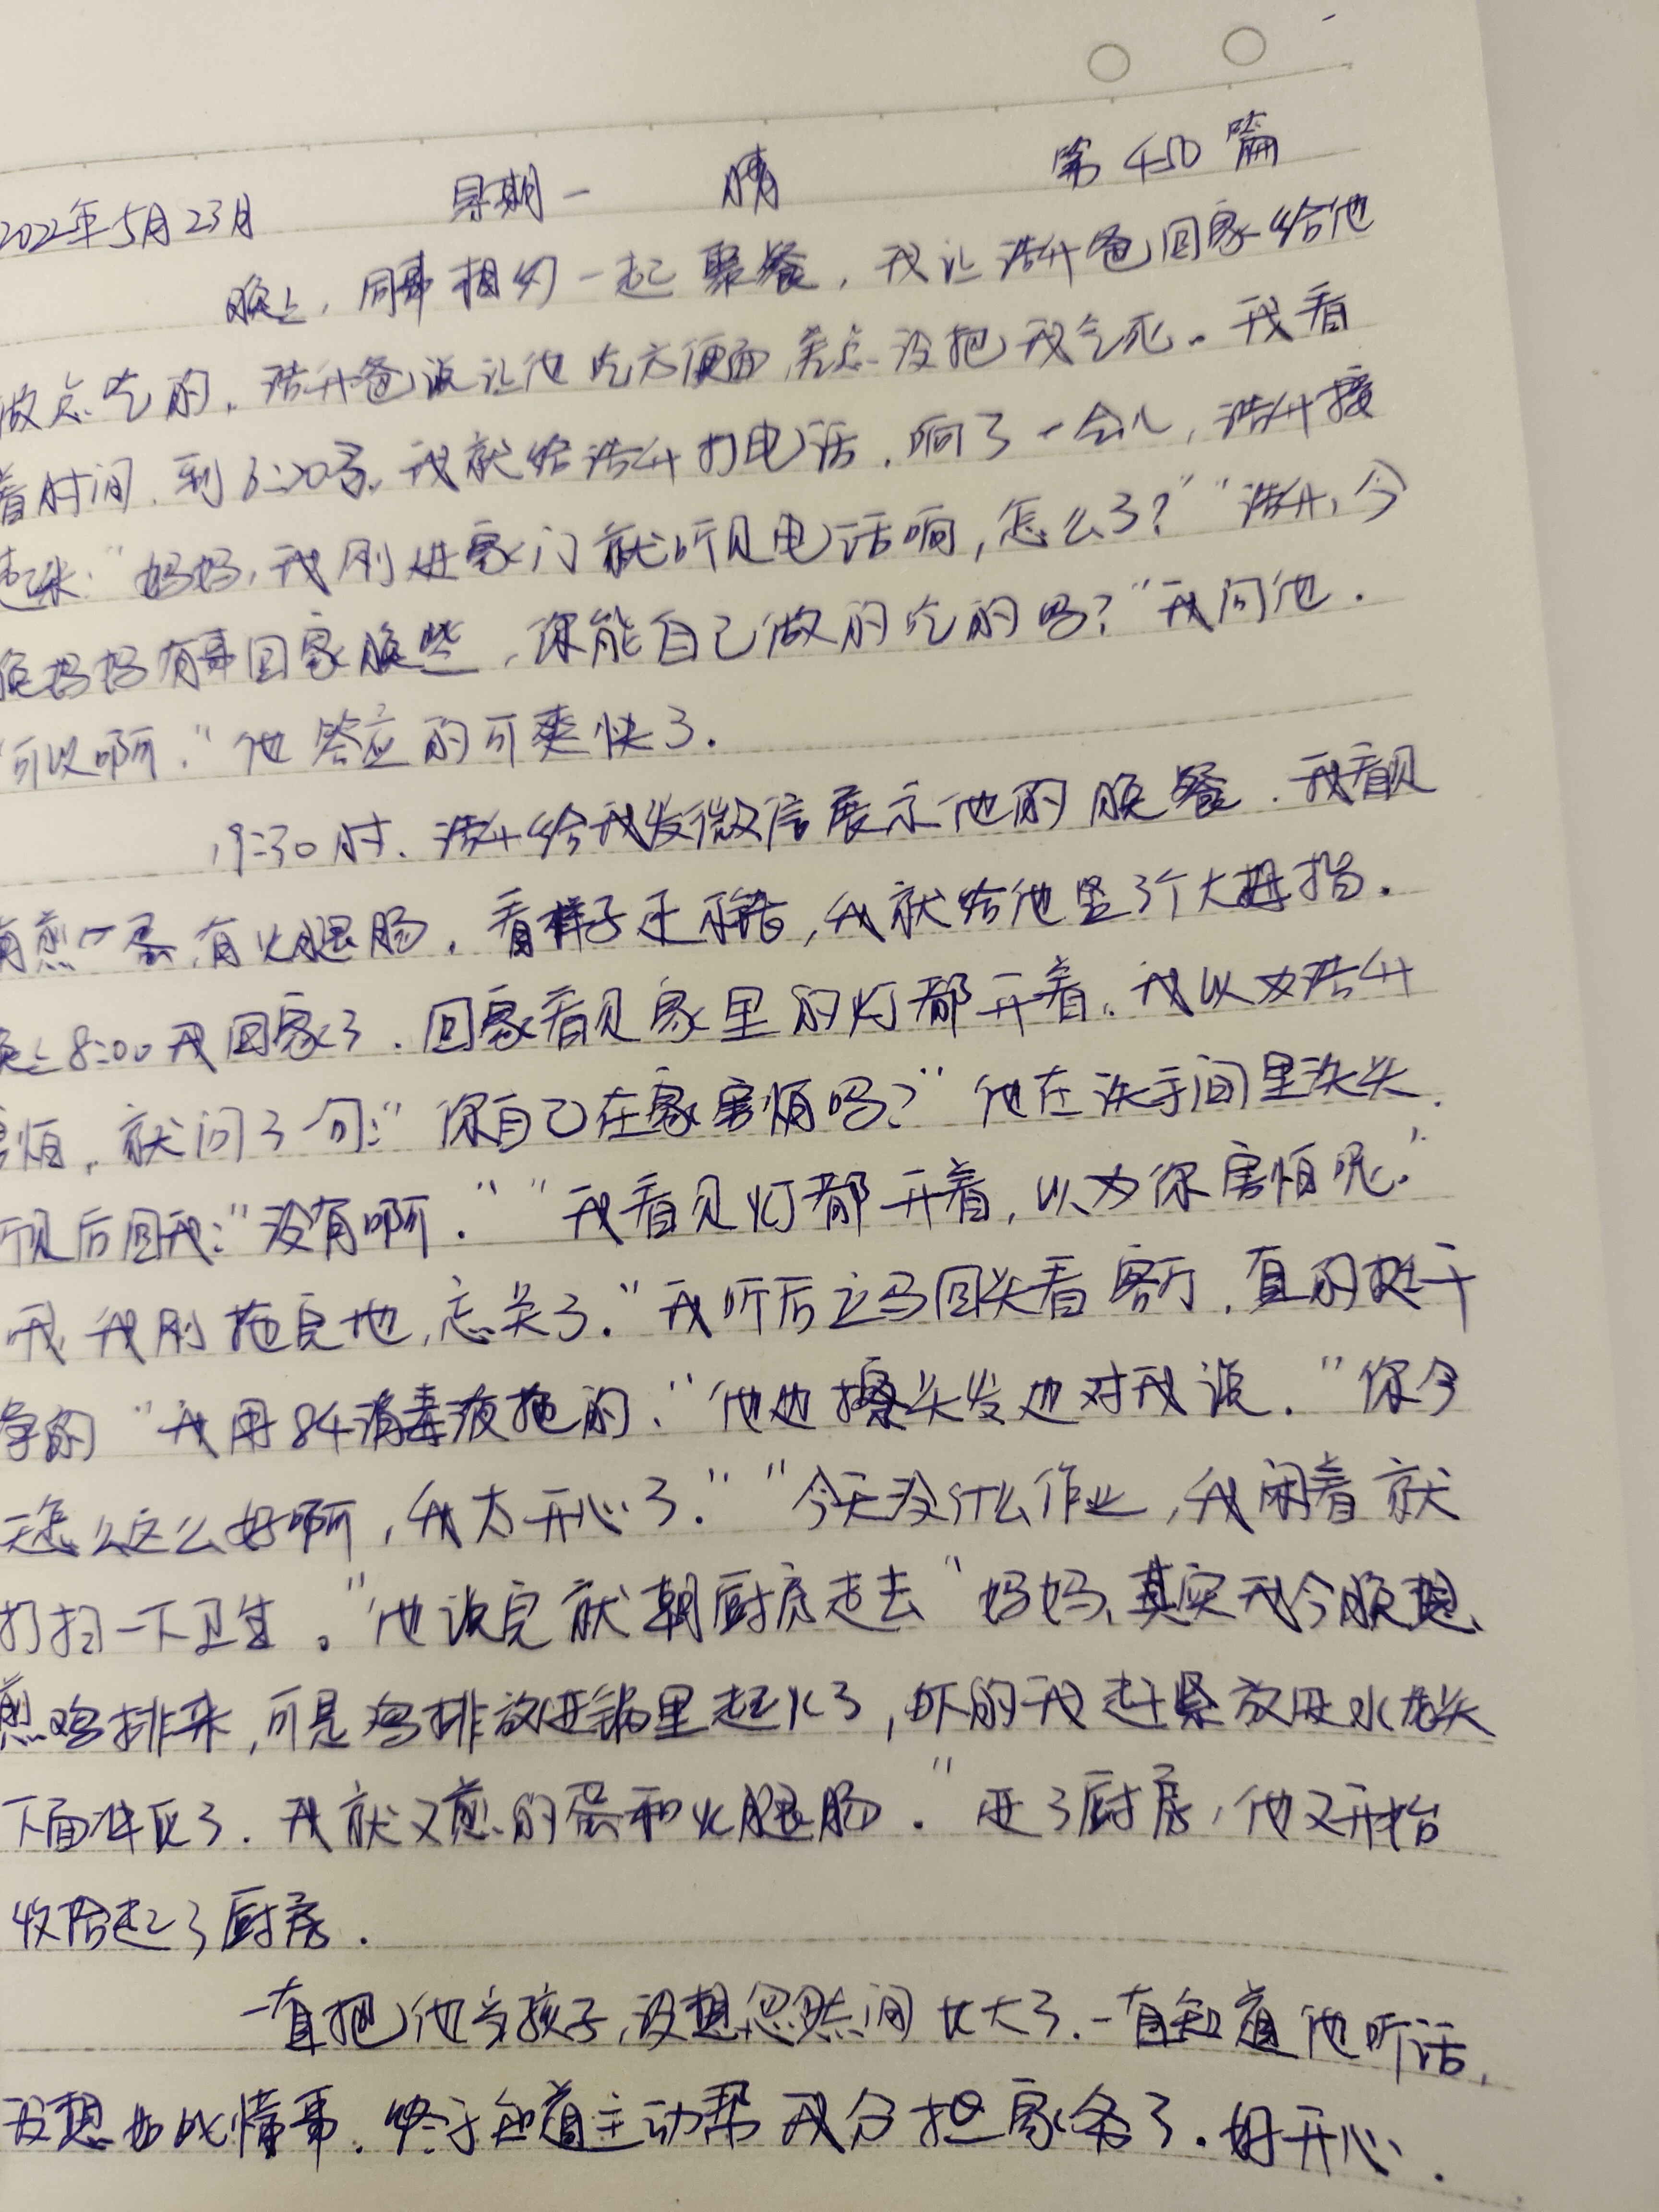 2022年5月23日 星期一 晴 第450篇
晚上,同事相约一起聚餐,我让浩升爸回家给他
做点吃的,浩升爸说让他吃方便面,差点没把我气死。我看
着时间,到6:20多,我就给浩升打电话,响了一会儿,浩升接
起来:"妈妈,我刚进家门就听见电话响,怎么了?""浩升,今
晚妈妈有事回家晚些,你能自己做的吃的吗?"我问他.
"可以啊."他答应的可爽快了.
19:30时,浩升给我发微信展示他的晚餐.我看见
有煎个蛋,有火腿肠,看样子还不错,我就给他竖3个大拇指.
晚上8:00我回家了.回家看见家里的灯都开着,我以为浩升
害怕,就问了句:"你自己在家害怕吗?"他在洗手间里洗头,
听见后回我:"没有啊.""我看见灯都开着,以为你害怕呢."
我我刚拖完地,忘关了."我听后立马回头看客厅,真的挺干
净的"我用84消毒液拖的,"他边擦头发边对我说."你今
天怎么这么好啊,我太开心了.""今天没什么作业,我闲着就
打扫一下卫生。"他说完就朝厨房走去"妈妈,其实我今晚想
煎鸡排来,可是鸡排放进锅里起火了,吓的我赶紧放进水龙头
下面冲灭了.我就又煎的蛋和火腿肠."进了厨房,他又开始
收拾起了厨房.
一直把他当孩子,没想忽然间长大了.一直知道他听话,
没想如此懂事.终于知道主动帮我分担家务了.好开心.